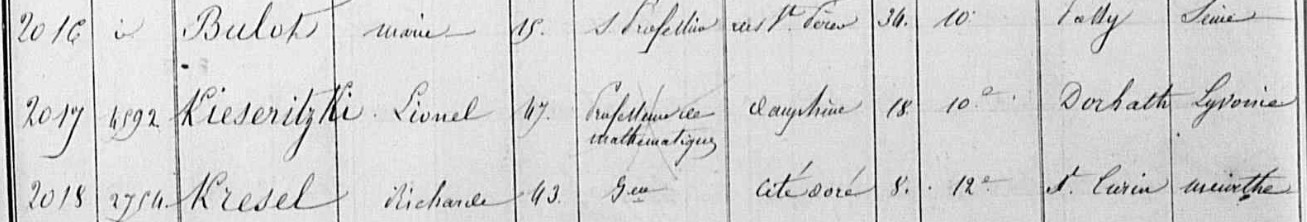 2016 d Bulot marie 15. S. Profession rue St. Pères 34. 10e Passy Seine
2017 4592 Kieseritzki Lionel 47. Professeur de mathematiques Dauphine 18. 10e Dorbath Lyvonie
2018 2754 Kresel Richard 43. Gen Cité doré 8. 12e St. Curin meurthe